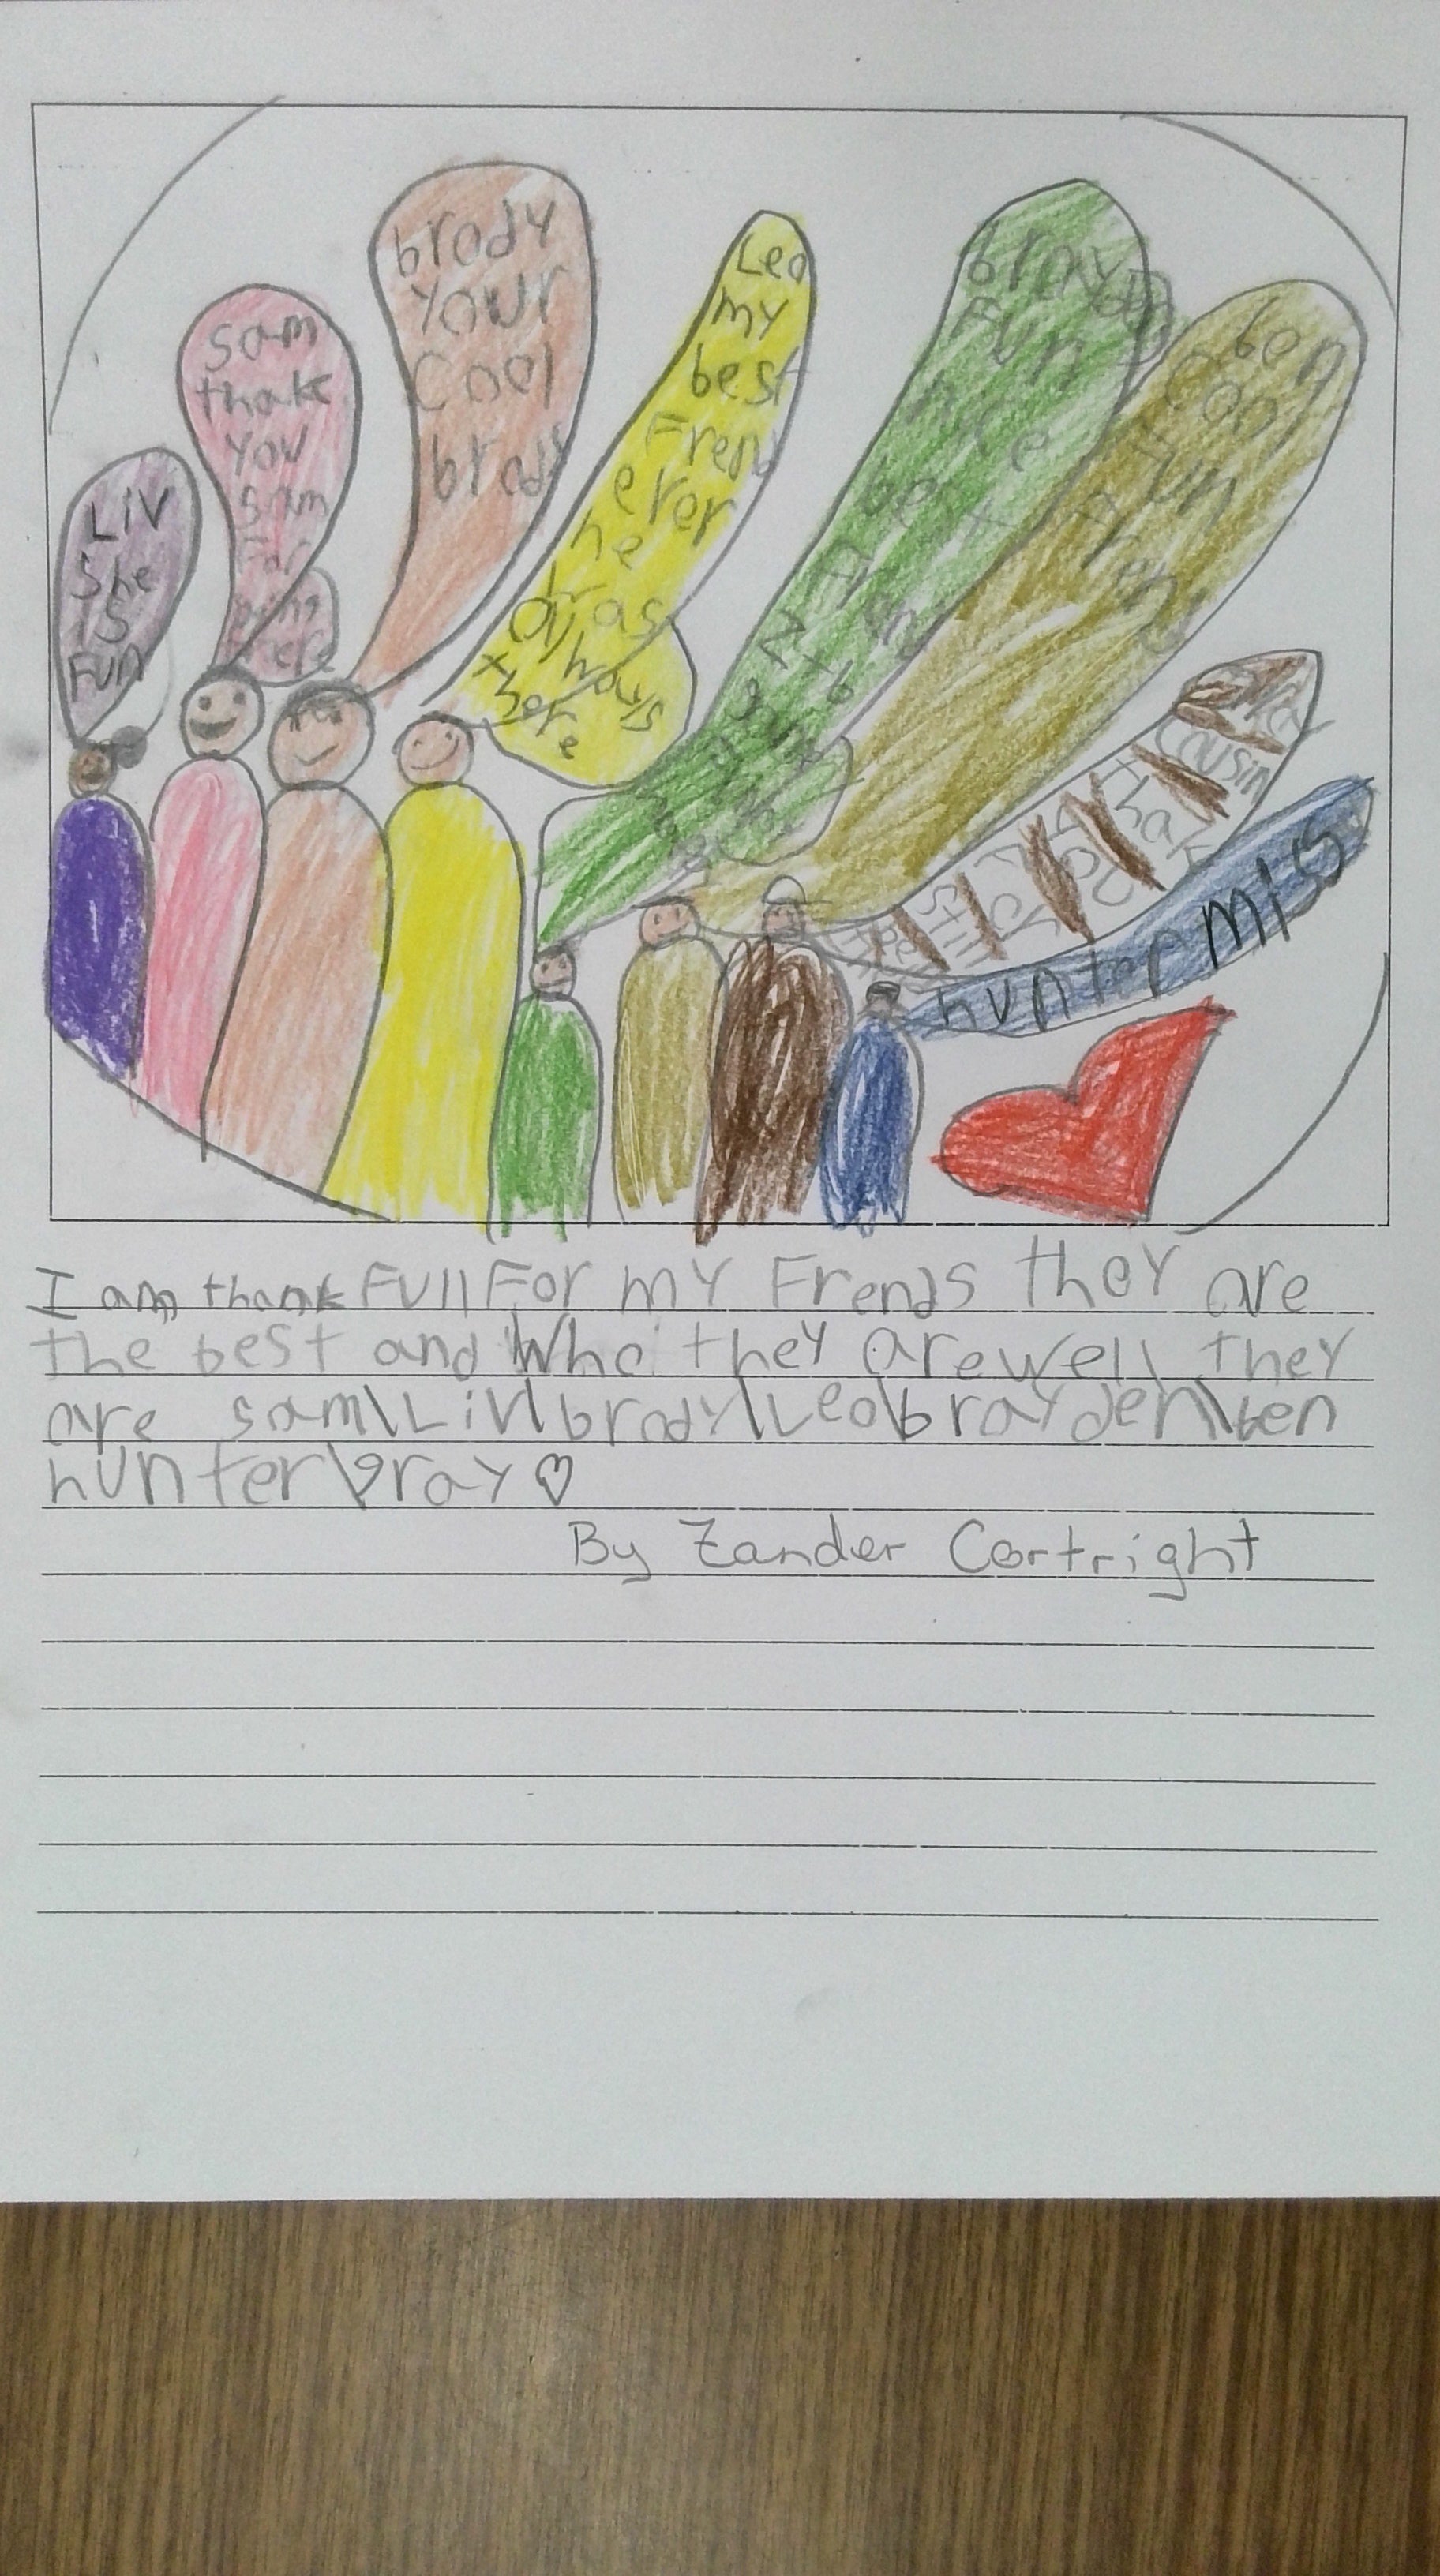 LiV
She
iS
FUN
Sam
thak
you
sam
For
being
here
brody
your
Cool
brody
Leo
my
best
Frend
ever
he
has
allways
there
brayden
Fun
nice
best
ben
Cool
fun
frend
cousin
thak
you
still
hunter mis
I am thankFullFor my Frends they are
the best and Who they arewell they
are sam\Liv\brody\Leo\brayden\ben
hunter\bray♡
By Zander Cortright